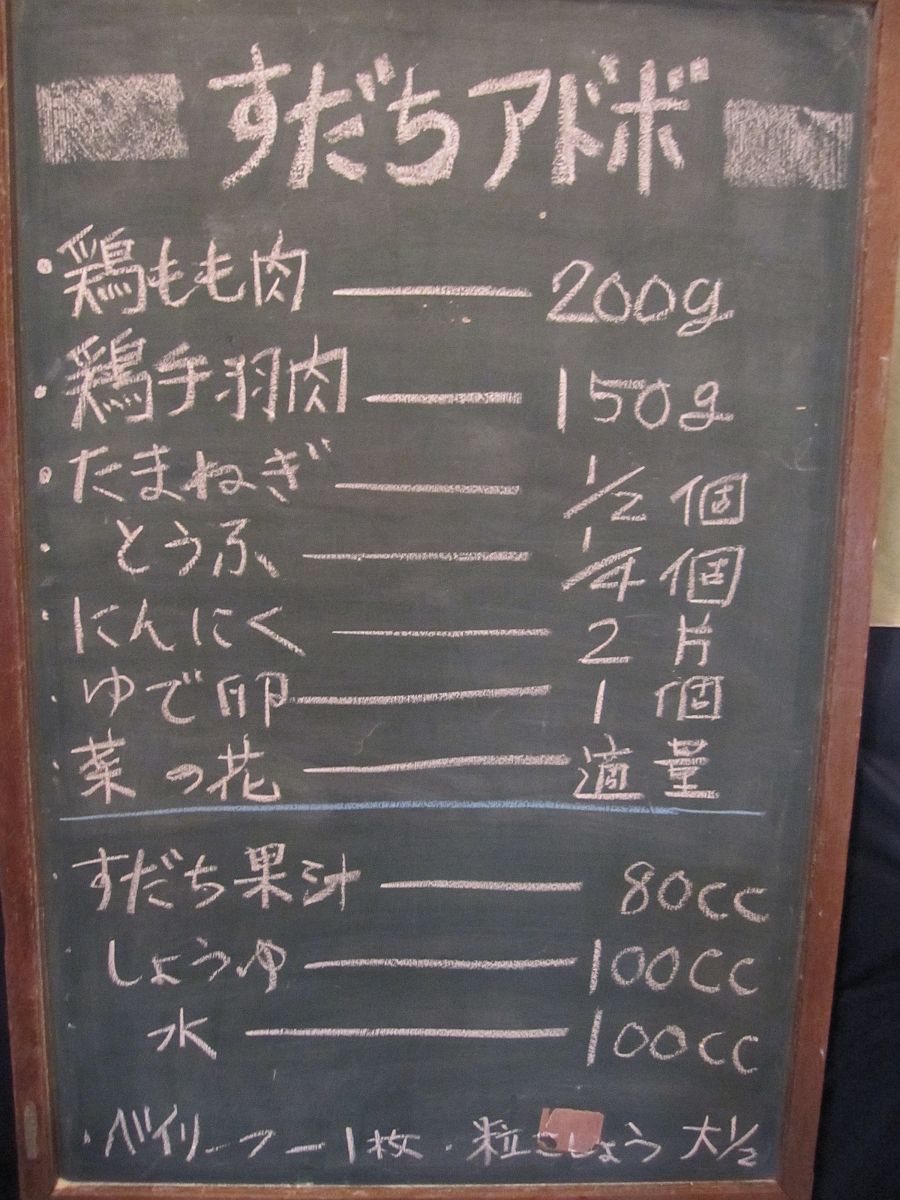 すだちアドボ
・鶏もも肉 ―― 200g
・鶏手羽肉 ―― 150g
・たまねぎ ―― 1/2 個
・とうふ ―― 1/4 個
・にんにく ―― 2 片
・ゆで卵 ―― 1 個
・菜の花 ―― 適量
・すだち果汁 ―― 80cc
しょうゆ ―― 100cc
・水 ―― 100cc
・ベイリーフー1枚・粒こしょう 大1/2